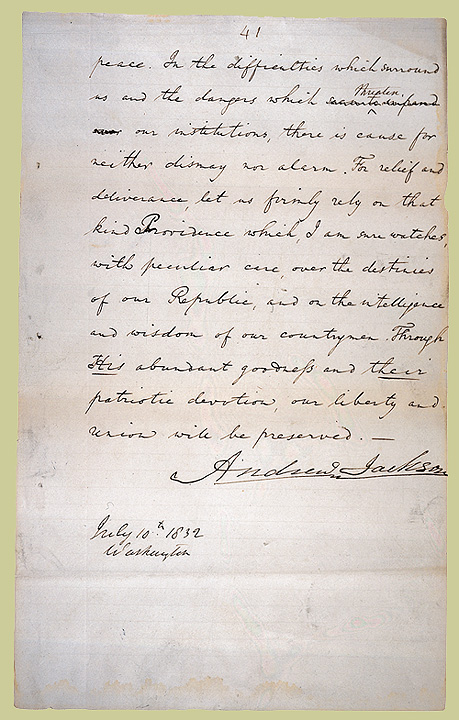 41
peace. In the difficulties which surround
us and the dangers which threaten
our institutions, there is cause for
neither dismay nor alarm. For relief and
deliverance, let us firmly rely on that
kind Providence which, I am sure watches,
with peculiar care, over the destinies
of our Republic, and on the intelligence
and wisdom of our countrymen. Through
His abundant goodness and their
patriotic devotion, our liberty and
union will be preserved. —
Andrew Jackson
July 10th 1832
Washington